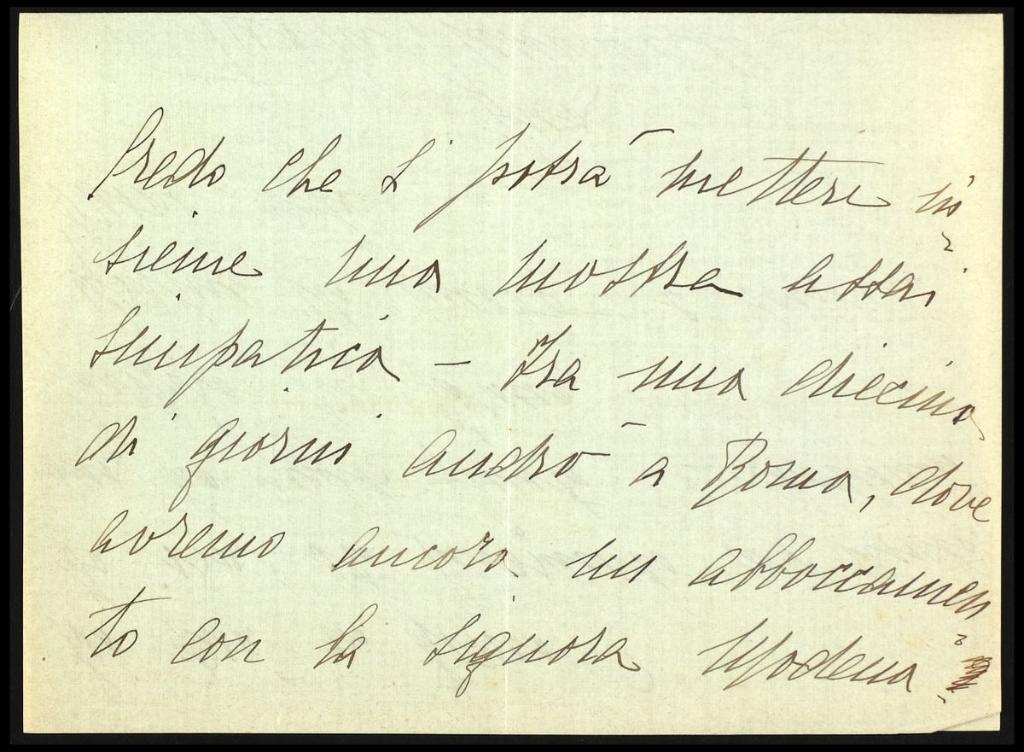 Credo che si potrà mettere in
sieme una mostra assai
simpatica — Fra una diecina
di giorni andrò a Roma, dove
avremo ancora un abboccamen
to con la signora Modena